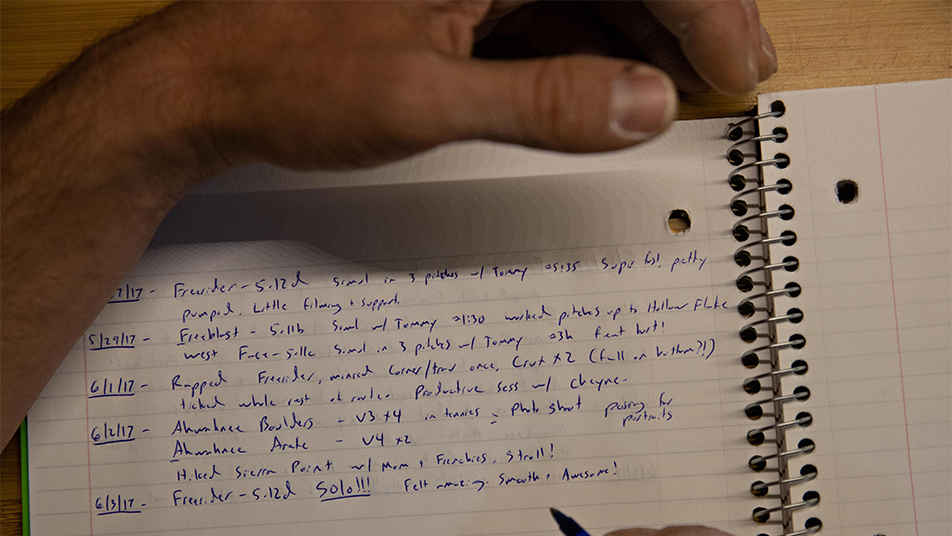 7/17 - Freerider - 5.12d Simul in 3 pitches w/ Tommy 05:35 Super fast, pretty
pumped. Little filming + support.
5/29/17 - Freeblast - 5.11b Simul w/ Tommy 01:30 worked pitches up to Hollow Flake
West Face - 5.11c Simul in 3 pitches w/ Tommy 03h Feet hurt!
6/1/17 - Rapped Freerider, mini'd Corner/trav once, Crux x2 (fell on bottom?!)
ticked whole rest of route. Productive sess w/ Cheyne.
6/2/17 - Ahwahnee Boulders - V3 x4 in tennies - photo shoot posing for
portraits
Ahwahnee Arete - V4 x2
Hiked Sierra Point w/ Mom + Frenchies, Stroll!
6/3/17 - Freerider - 5.12d SOLO!!! Felt amazing. Smooth + Awesome!